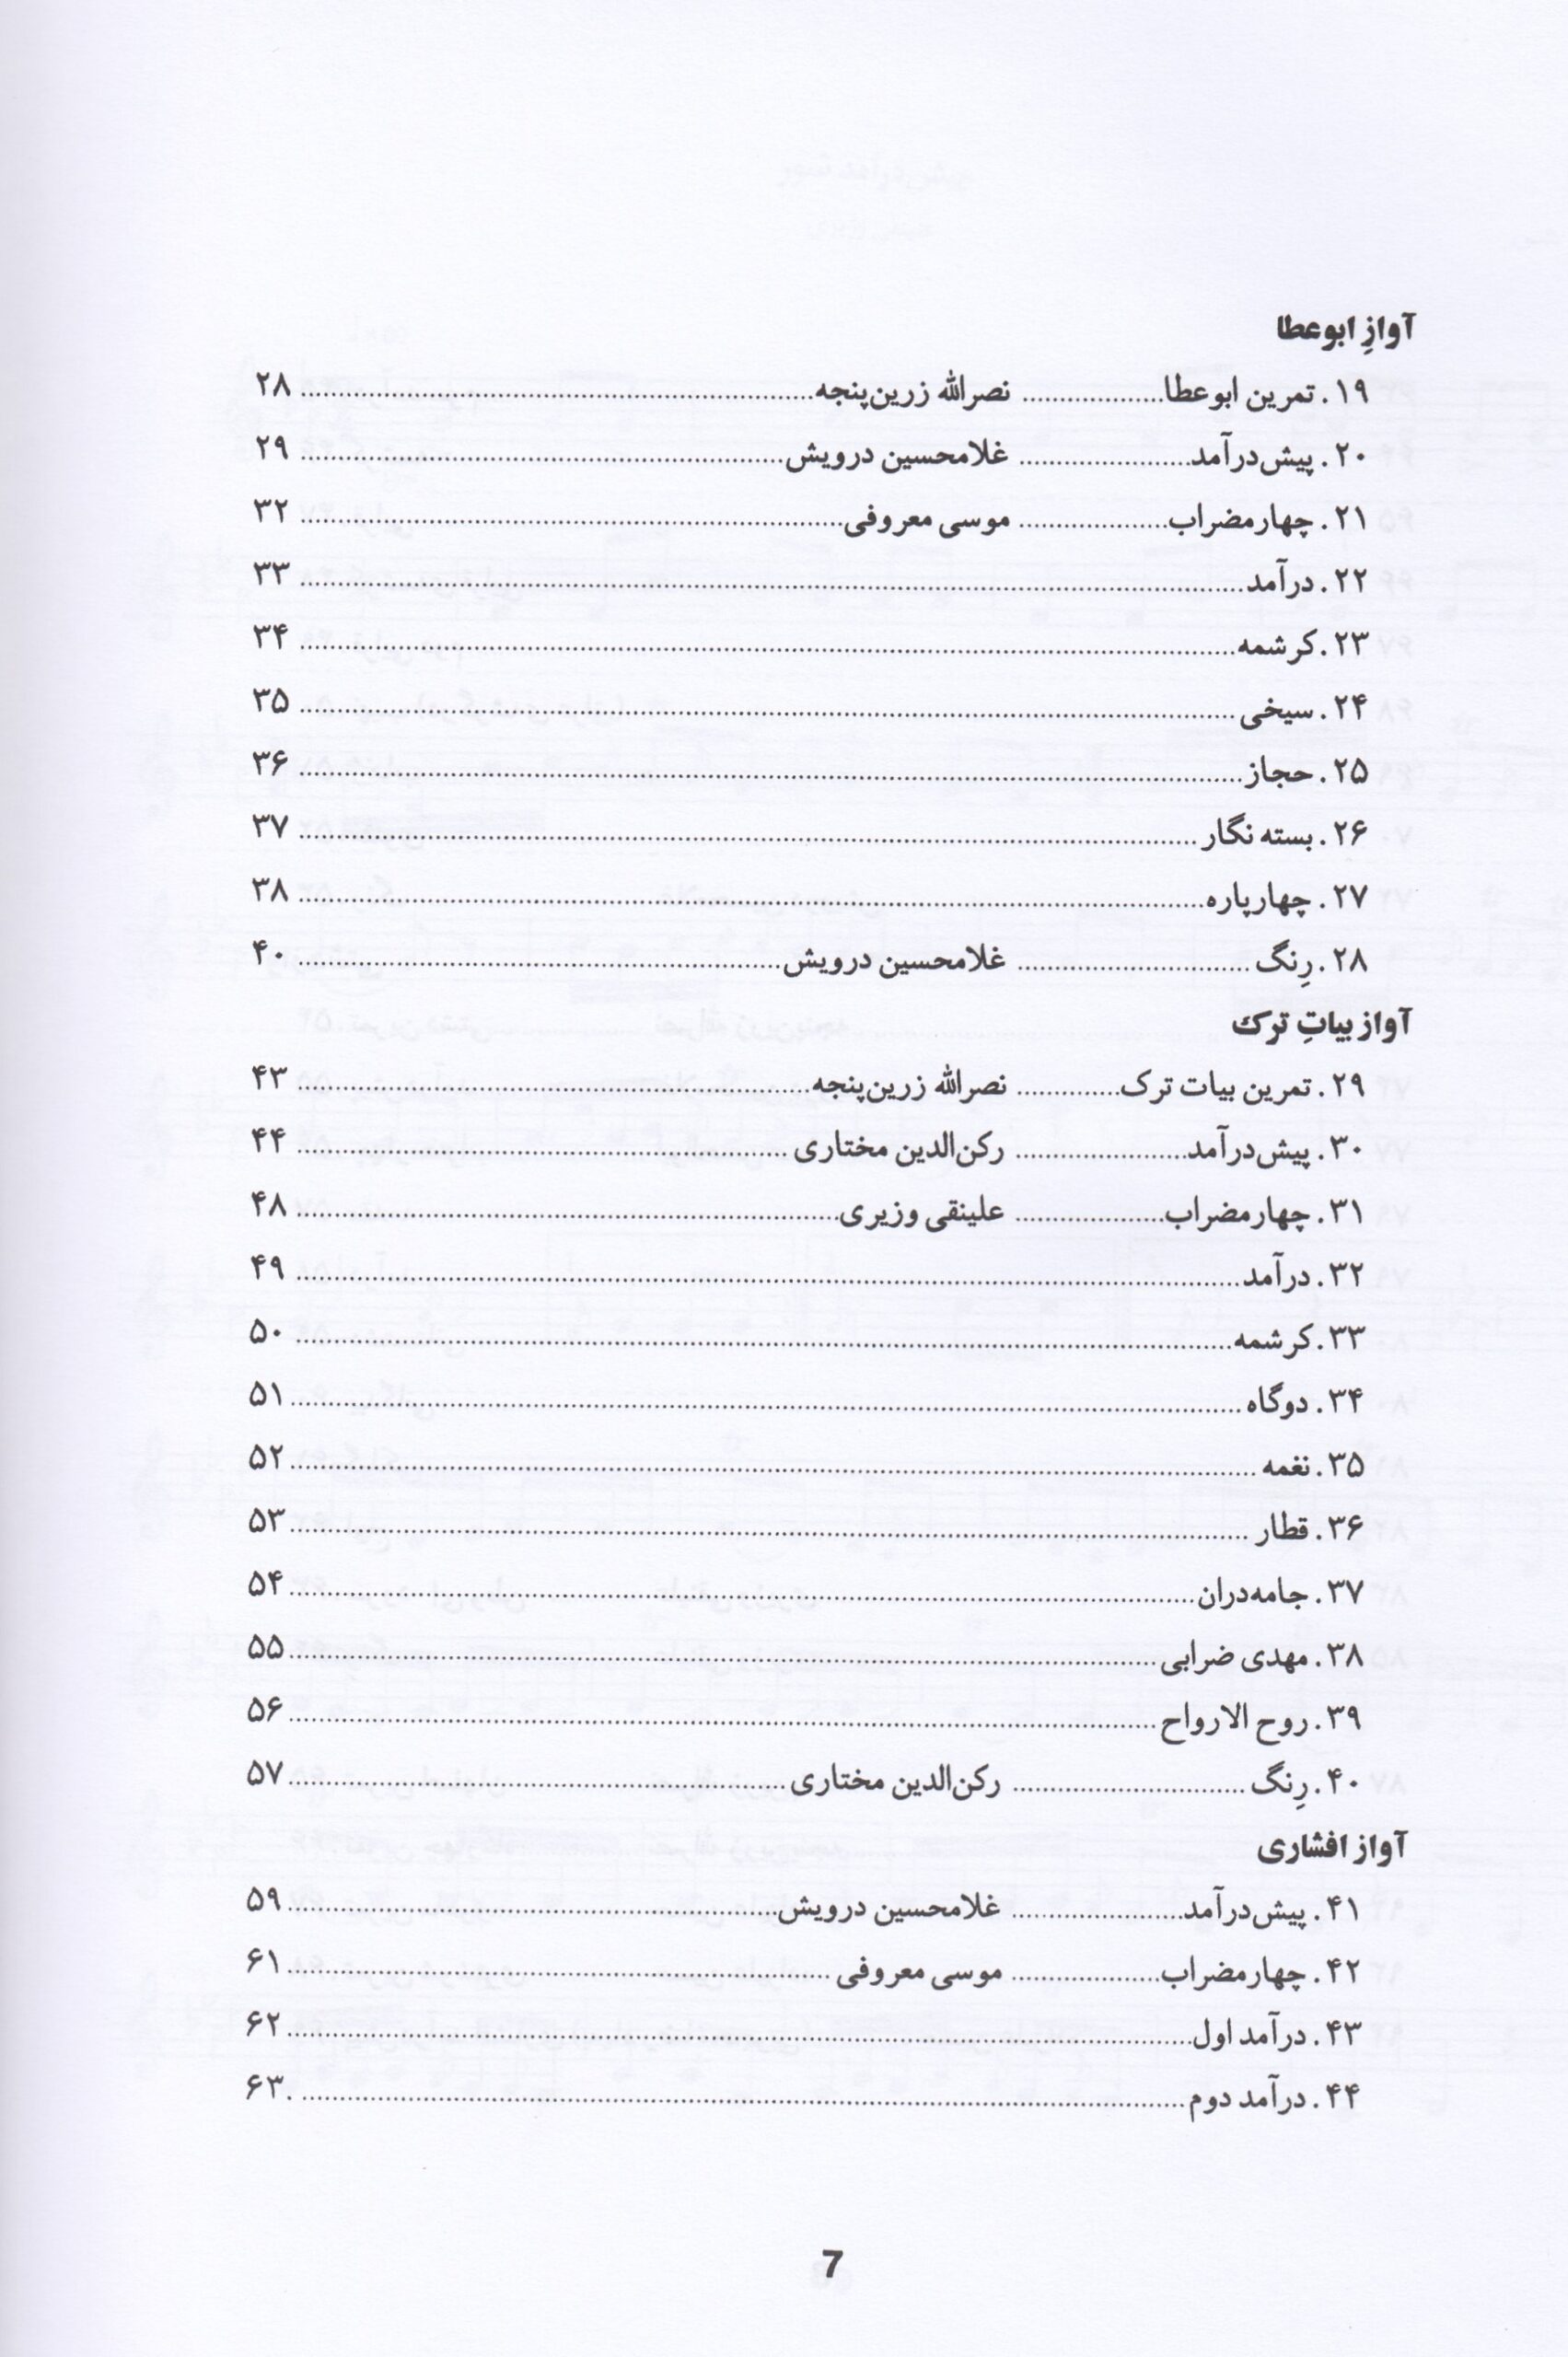 آوازِ ابوعطا
۱۹. تمرین ابوعطا.................. نصرالله زرین‌پنجه.................. ۲۸
۲۰. پیش‌درآمد.................. غلامحسین درویش.................. ۲۹
۲۱. چهارمضراب.................. موسی معروفی.................. ۳۲
۲۲. درآمد.................. ۳۳
۲۳. کرشمه.................. ۳۴
۲۴. سیخی.................. ۳۵
۲۵. حجاز.................. ۳۶
۲۶. بسته نگار.................. ۳۷
۲۷. چهارپاره.................. ۳۸
۲۸. رِنگ.................. غلامحسین درویش.................. ۴۰
آواز بیاتِ ترک
۲۹. تمرین بیات ترک.................. نصرالله زرین‌پنجه.................. ۴۳
۳۰. پیش‌درآمد.................. رکن‌الدین مختاری.................. ۴۴
۳۱. چهارمضراب.................. علینقی وزیری.................. ۴۸
۳۲. درآمد.................. ۴۹
۳۳. کرشمه.................. ۵۰
۳۴. دوگاه.................. ۵۱
۳۵. نغمه.................. ۵۲
۳۶. قطار.................. ۵۳
۳۷. جامه‌دران.................. ۵۴
۳۸. مهدی ضرابی.................. ۵۵
۳۹. روح الارواح.................. ۵۶
۴۰. رِنگ.................. رکن‌الدین مختاری.................. ۵۷
آواز افشاری
۴۱. پیش‌درآمد.................. غلامحسین درویش.................. ۵۹
۴۲. چهارمضراب.................. موسی معروفی.................. ۶۱
۴۳. درآمد اول.................. ۶۲
۴۴. درآمد دوم.................. ۶۳
7